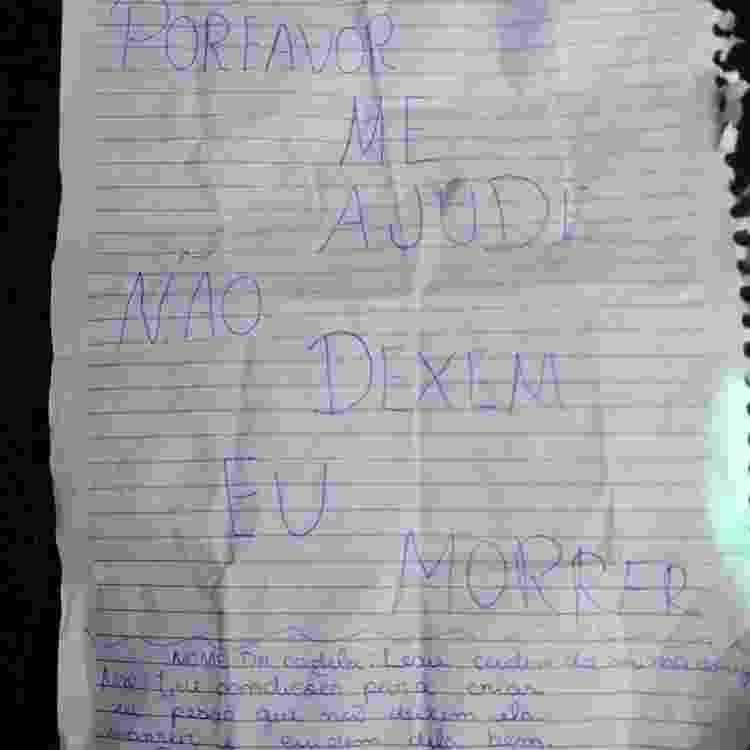 PORFAVOR
ME
AJUDE
NÃO
DEXEM
EU
MORRER
NOME Da cadela. cuidem da
que condições para criar
eu peço que não deixem ela
morrer e cuidem dela bem.